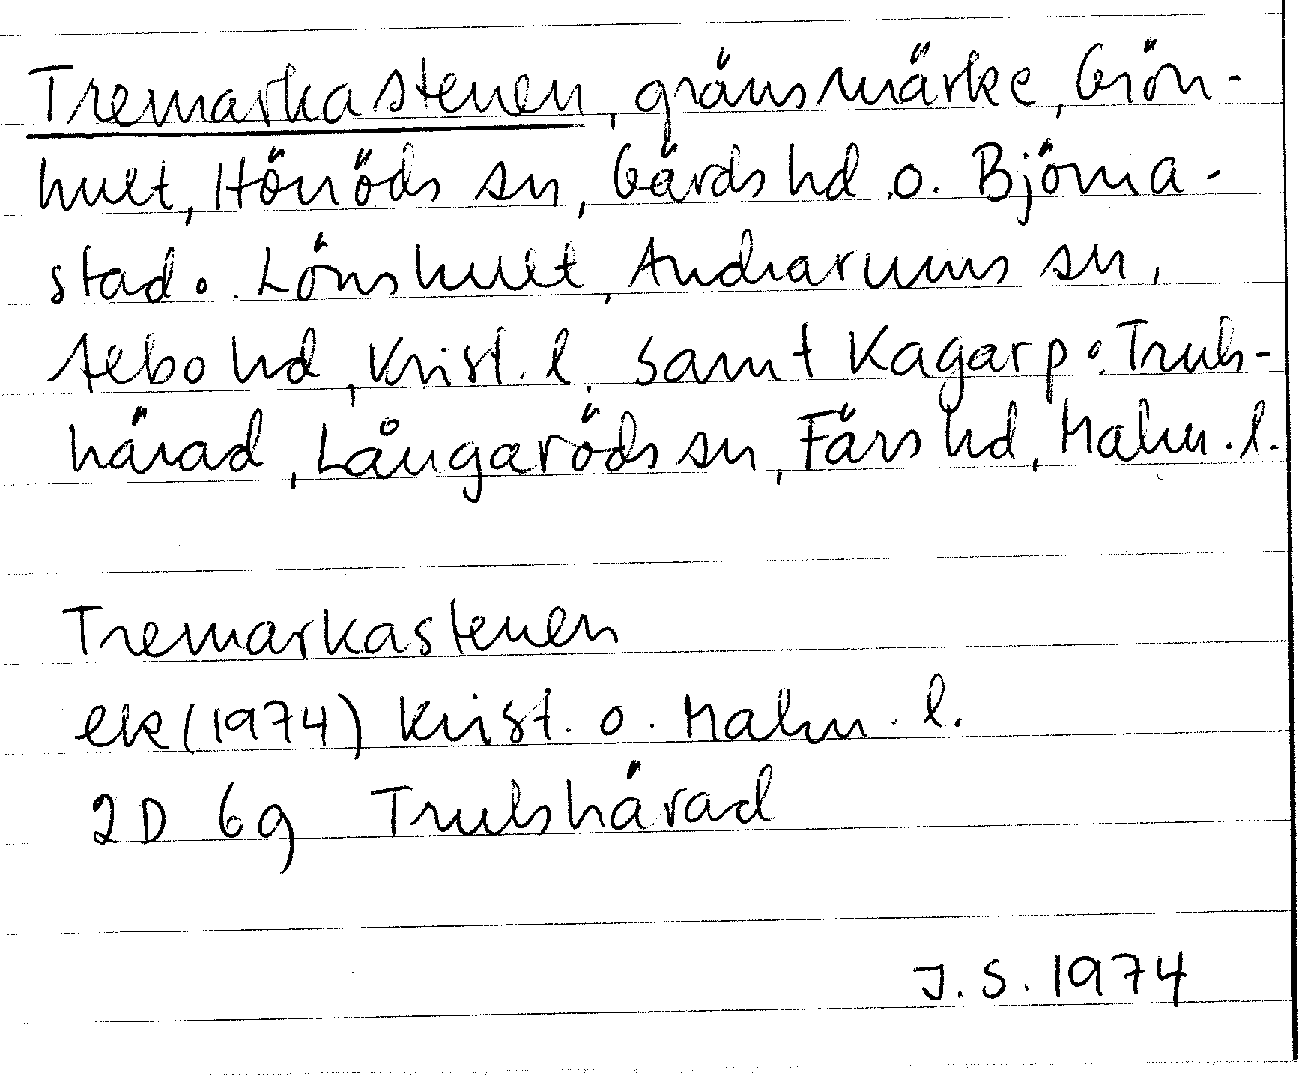 Tremarkastenen, gränsmärke, Grön-
hult, Hörröds sn, Gärds hd o. Björna-
stad o. Lönshult, Andrarums sn,
Albo hd, Krist. l. samt Kagarp o. Truls-
härad, Långaröds sn, Färs hd, Malm. l.
Tremarkastenen
ek (1974) Krist. o. Malm. l.
2D 6g Trulshärad
J. S. 1974